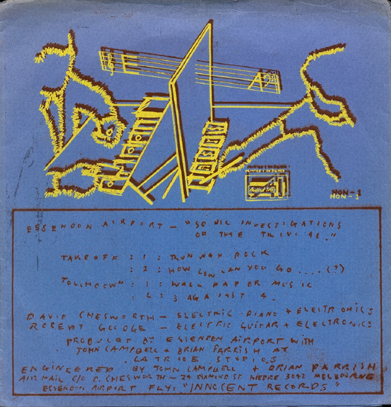 NON-3
ESSENDON AIRPORT – "SONIC INVESTIGATIONS
OF THE TRIVIAL"
TAKEOFF : 1 : RUNWAY
: 2 : HOW LOW CAN YOU GO .... (?)
TOUCHDOWN : 1 : WALLPAPER MUSIC
: 2 : 3 AGAINST 4
DAVID CHESWORTH – ELECTRIC PIANO + ELECTRONICS
ROBERT GOODGE – ELECTRIC GUITAR + ELECTRONICS
PRODUCED BY ESSENDON AIRPORT WITH
JOHN CAMPBELL + BRIAN PARRISH AT
LATROBE STUDIOS
ENGINEERED BY JOHN CAMPBELL + BRIAN PARRISH
AIR MAIL C/O D. CHESWORTH – ST 3072 MELBOURNE
ESSENDON AIRPORT FLY: "INNOCENT RECORDS"